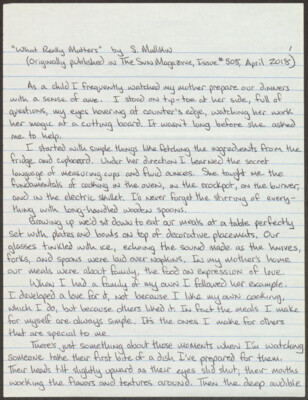 1
"What Really Matters" by S. Mullikin
(Originally published in The Sun Magazine, Issue #508, April 2018)
As a child I frequently watched my mother prepare our dinners
with a sense of awe. I stood on tip-toe at her side, full of
questions, my eyes hovering at counter's edge, watching her work
her magic at a cutting board. It wasn't long before she asked
me to help.
I started with simple things like fetching the ingredients from the
fridge and cupboard. Under her direction I learned the secret
language of measuring cups and fluid ounces. She taught me the
fundamentals of cooking in the oven, in the crockpot, on the burner,
and in the electric skillet. I'll never forget the stirring of every-
thing with long-handled wooden spoons.
Growing up we'd sit down to eat our meals at a table perfectly
set with plates and bowls on top of decorative placemats. Our
glasses tinkled with ice, echoing the sound made as the knives,
forks, and spoons were laid over napkins. In my mother's home
our meals were about family, the food an expression of love.
When I had a family of my own I followed her example.
I developed a love for it, not because I like my own cooking,
which I do, but because others liked it. In fact the meals I make
for myself are always simple. It's the ones I make for others
that are special to me.
There's just something about those moments when I'm watching
someone take their first bite of a dish I've prepared for them.
Their heads tilt slightly upward as their eyes slid shut; their mouths
working the flavors and textures around. Then the deep audible